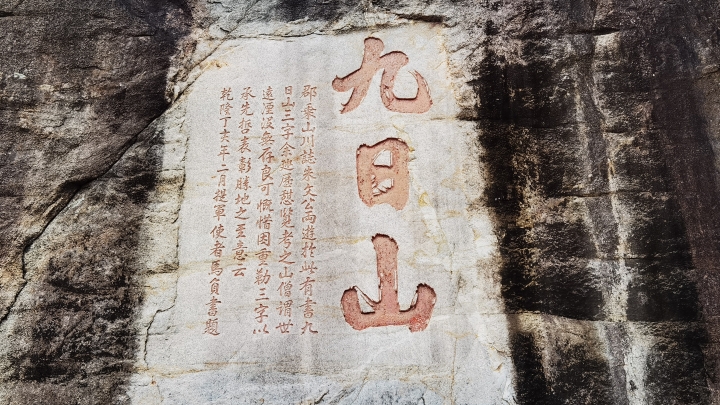 九日山
郡乘山川誌朱文公兩遊於此有書九
日山三字余登憩覽考之山僧謂世
遠湮沒無存良可慨惜因重勒三字以
承先哲表彰勝地之至意云
乾隆丁亥年二月提軍使者馬負書題